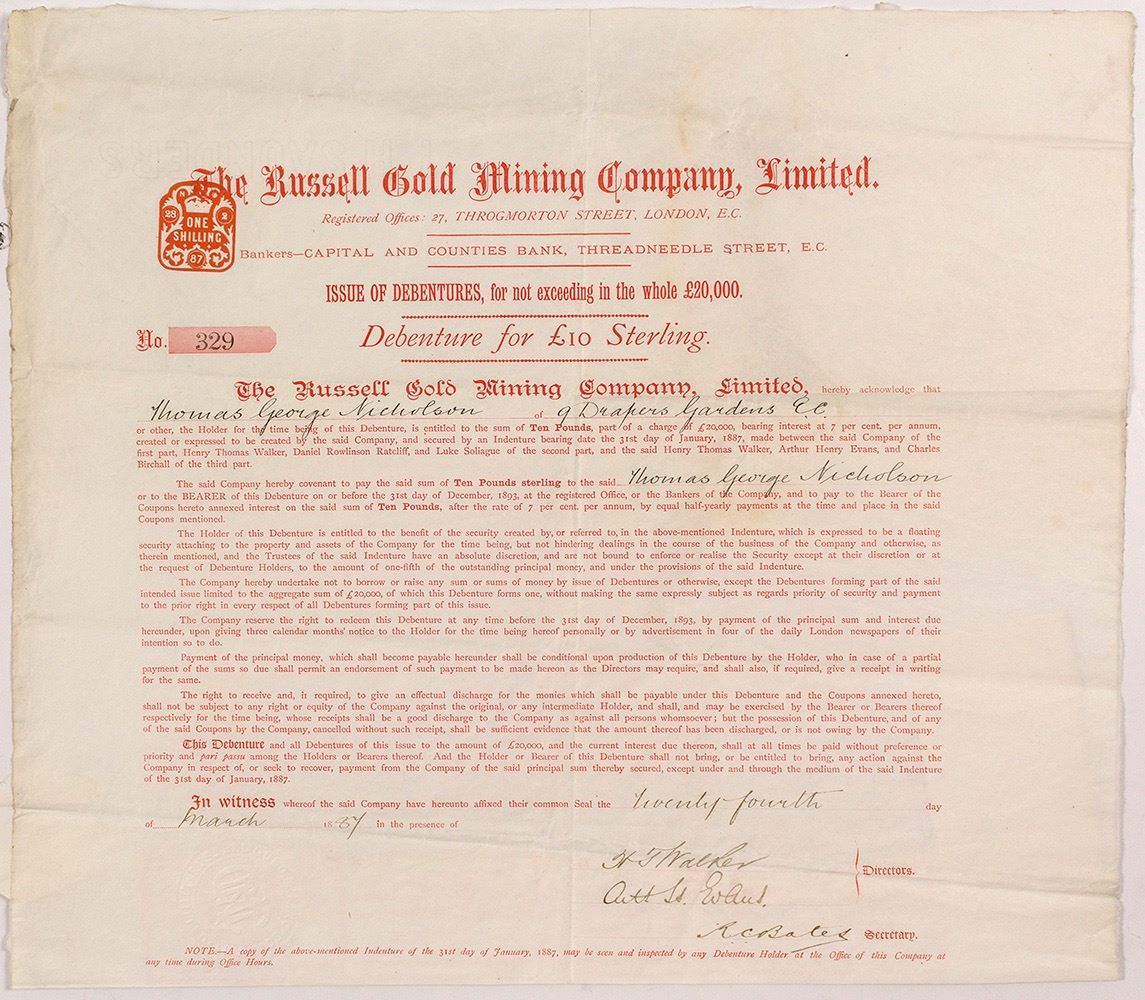 The Russell Gold Mining Company, Limited.
Registered Offices: 27, THROGMORTON STREET, LONDON, E.C.
28 2
ONE
SHILLING
87
Bankers—CAPITAL AND COUNTIES BANK, THREADNEEDLE STREET, E.C.
ISSUE OF DEBENTURES, for not exceeding in the whole £20,000.
No. 329
Debenture for £10 Sterling.
The Russell Gold Mining Company, Limited, hereby acknowledge that
Thomas George Nicholson of 9 Drapers Gardens E.C.
or other, the Holder for the time being of this Debenture, is entitled to the sum of Ten Pounds, part of a charge of £20,000, bearing interest at 7 per cent. per annum,
created or expressed to be created by the said Company, and secured by an Indenture bearing date the 31st day of January, 1887, made between the said Company of the
first part, Henry Thomas Walker, Daniel Rowlinson Ratcliff, and Luke Soliague of the second part, and the said Henry Thomas Walker, Arthur Henry Evans, and Charles
Birchall of the third part.
The said Company hereby covenant to pay the said sum of Ten Pounds sterling to the said Thomas George Nicholson
or to the BEARER of this Debenture on or before the 31st day of December, 1893, at the registered Office, or the Bankers of the Company, and to pay to the Bearer of the
Coupons hereto annexed interest on the said sum of Ten Pounds, after the rate of 7 per cent. per annum, by equal half-yearly payments at the time and place in the said
Coupons mentioned.
The Holder of this Debenture is entitled to the benefit of the security created by, or referred to, in the above-mentioned Indenture, which is expressed to be a floating
security attaching to the property and assets of the Company for the time being, but not hindering dealings in the course of the business of the Company and otherwise, as
therein mentioned, and the Trustees of the said Indenture have an absolute discretion, and are not bound to enforce or realise the Security except at their discretion or at
the request of Debenture Holders, to the amount of one-fifth of the outstanding principal money, and under the provisions of the said Indenture.
The Company hereby undertake not to borrow or raise any sum or sums of money by issue of Debentures or otherwise, except the Debentures forming part of the said
intended issue limited to the aggregate sum of £20,000, of which this Debenture forms one, without making the same expressly subject as regards priority of security and payment
to the prior right in every respect of all Debentures forming part of this issue.
The Company reserve the right to redeem this Debenture at any time before the 31st day of December, 1893, by payment of the principal sum and interest due
hereunder, upon giving three calendar months' notice to the Holder for the time being hereof personally or by advertisement in four of the daily London newspapers of their
intention so to do.
Payment of the principal money, which shall become payable hereunder shall be conditional upon production of this Debenture by the Holder, who in case of a partial
payment of the sums so due shall permit an endorsement of such payment to be made hereon as the Directors may require, and shall also, if required, give a receipt in writing
for the same.
The right to receive and, if required, to give an effectual discharge for the monies which shall be payable under this Debenture and the Coupons annexed hereto,
shall not be subject to any right or equity of the Company against the original, or any intermediate Holder, and shall, and may be exercised by the Bearer or Bearers thereof
respectively for the time being, whose receipts shall be a good discharge to the Company as against all persons whomsoever; but the possession of this Debenture, and of any
of the said Coupons by the Company, cancelled without such receipt, shall be sufficient evidence that the amount thereof has been discharged, or is not owing by the Company.
This Debenture and all Debentures of this issue to the amount of £20,000, and the current interest due thereon, shall at all times be paid without preference or
priority and pari passu among the Holders or Bearers thereof. And the Holder or Bearer of this Debenture shall not bring, or be entitled to bring, any action against the
Company in respect of, or seek to recover, payment from the Company of the said principal sum thereby secured, except under and through the medium of the said Indenture
of the 31st day of January, 1887.
In witness whereof the said Company have hereunto affixed their common Seal the Twenty fourth day
of March 1887 in the presence of
H T Walker
Directors.
Arth H. Evans.
R C Bales Secretary.
NOTE.—A copy of the above-mentioned Indenture of the 31st day of January, 1887, may be seen and inspected by any Debenture Holder at the Office of this Company at
any time during Office Hours.